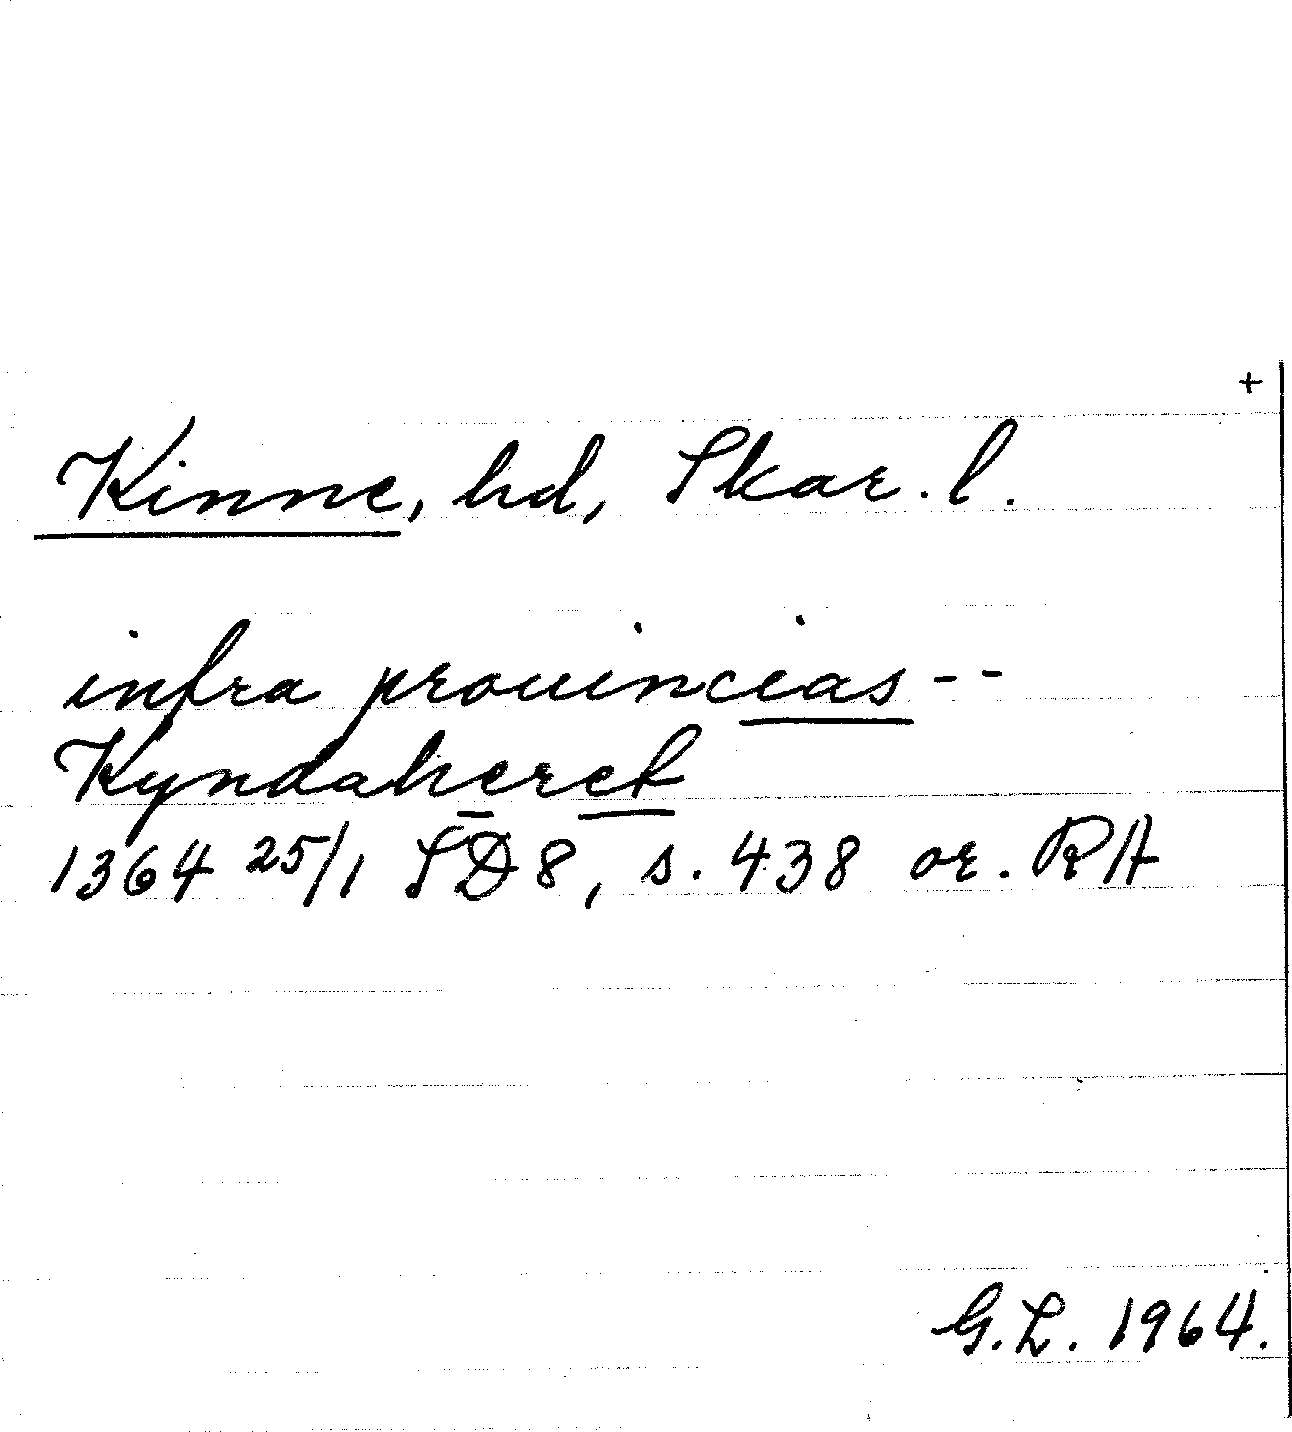 +
Kinne, hd, Skar. l.
infra prouincias --
Kyndaheret
1364 25/1 SD 8, s. 438 or. RA
G.L. 1964.